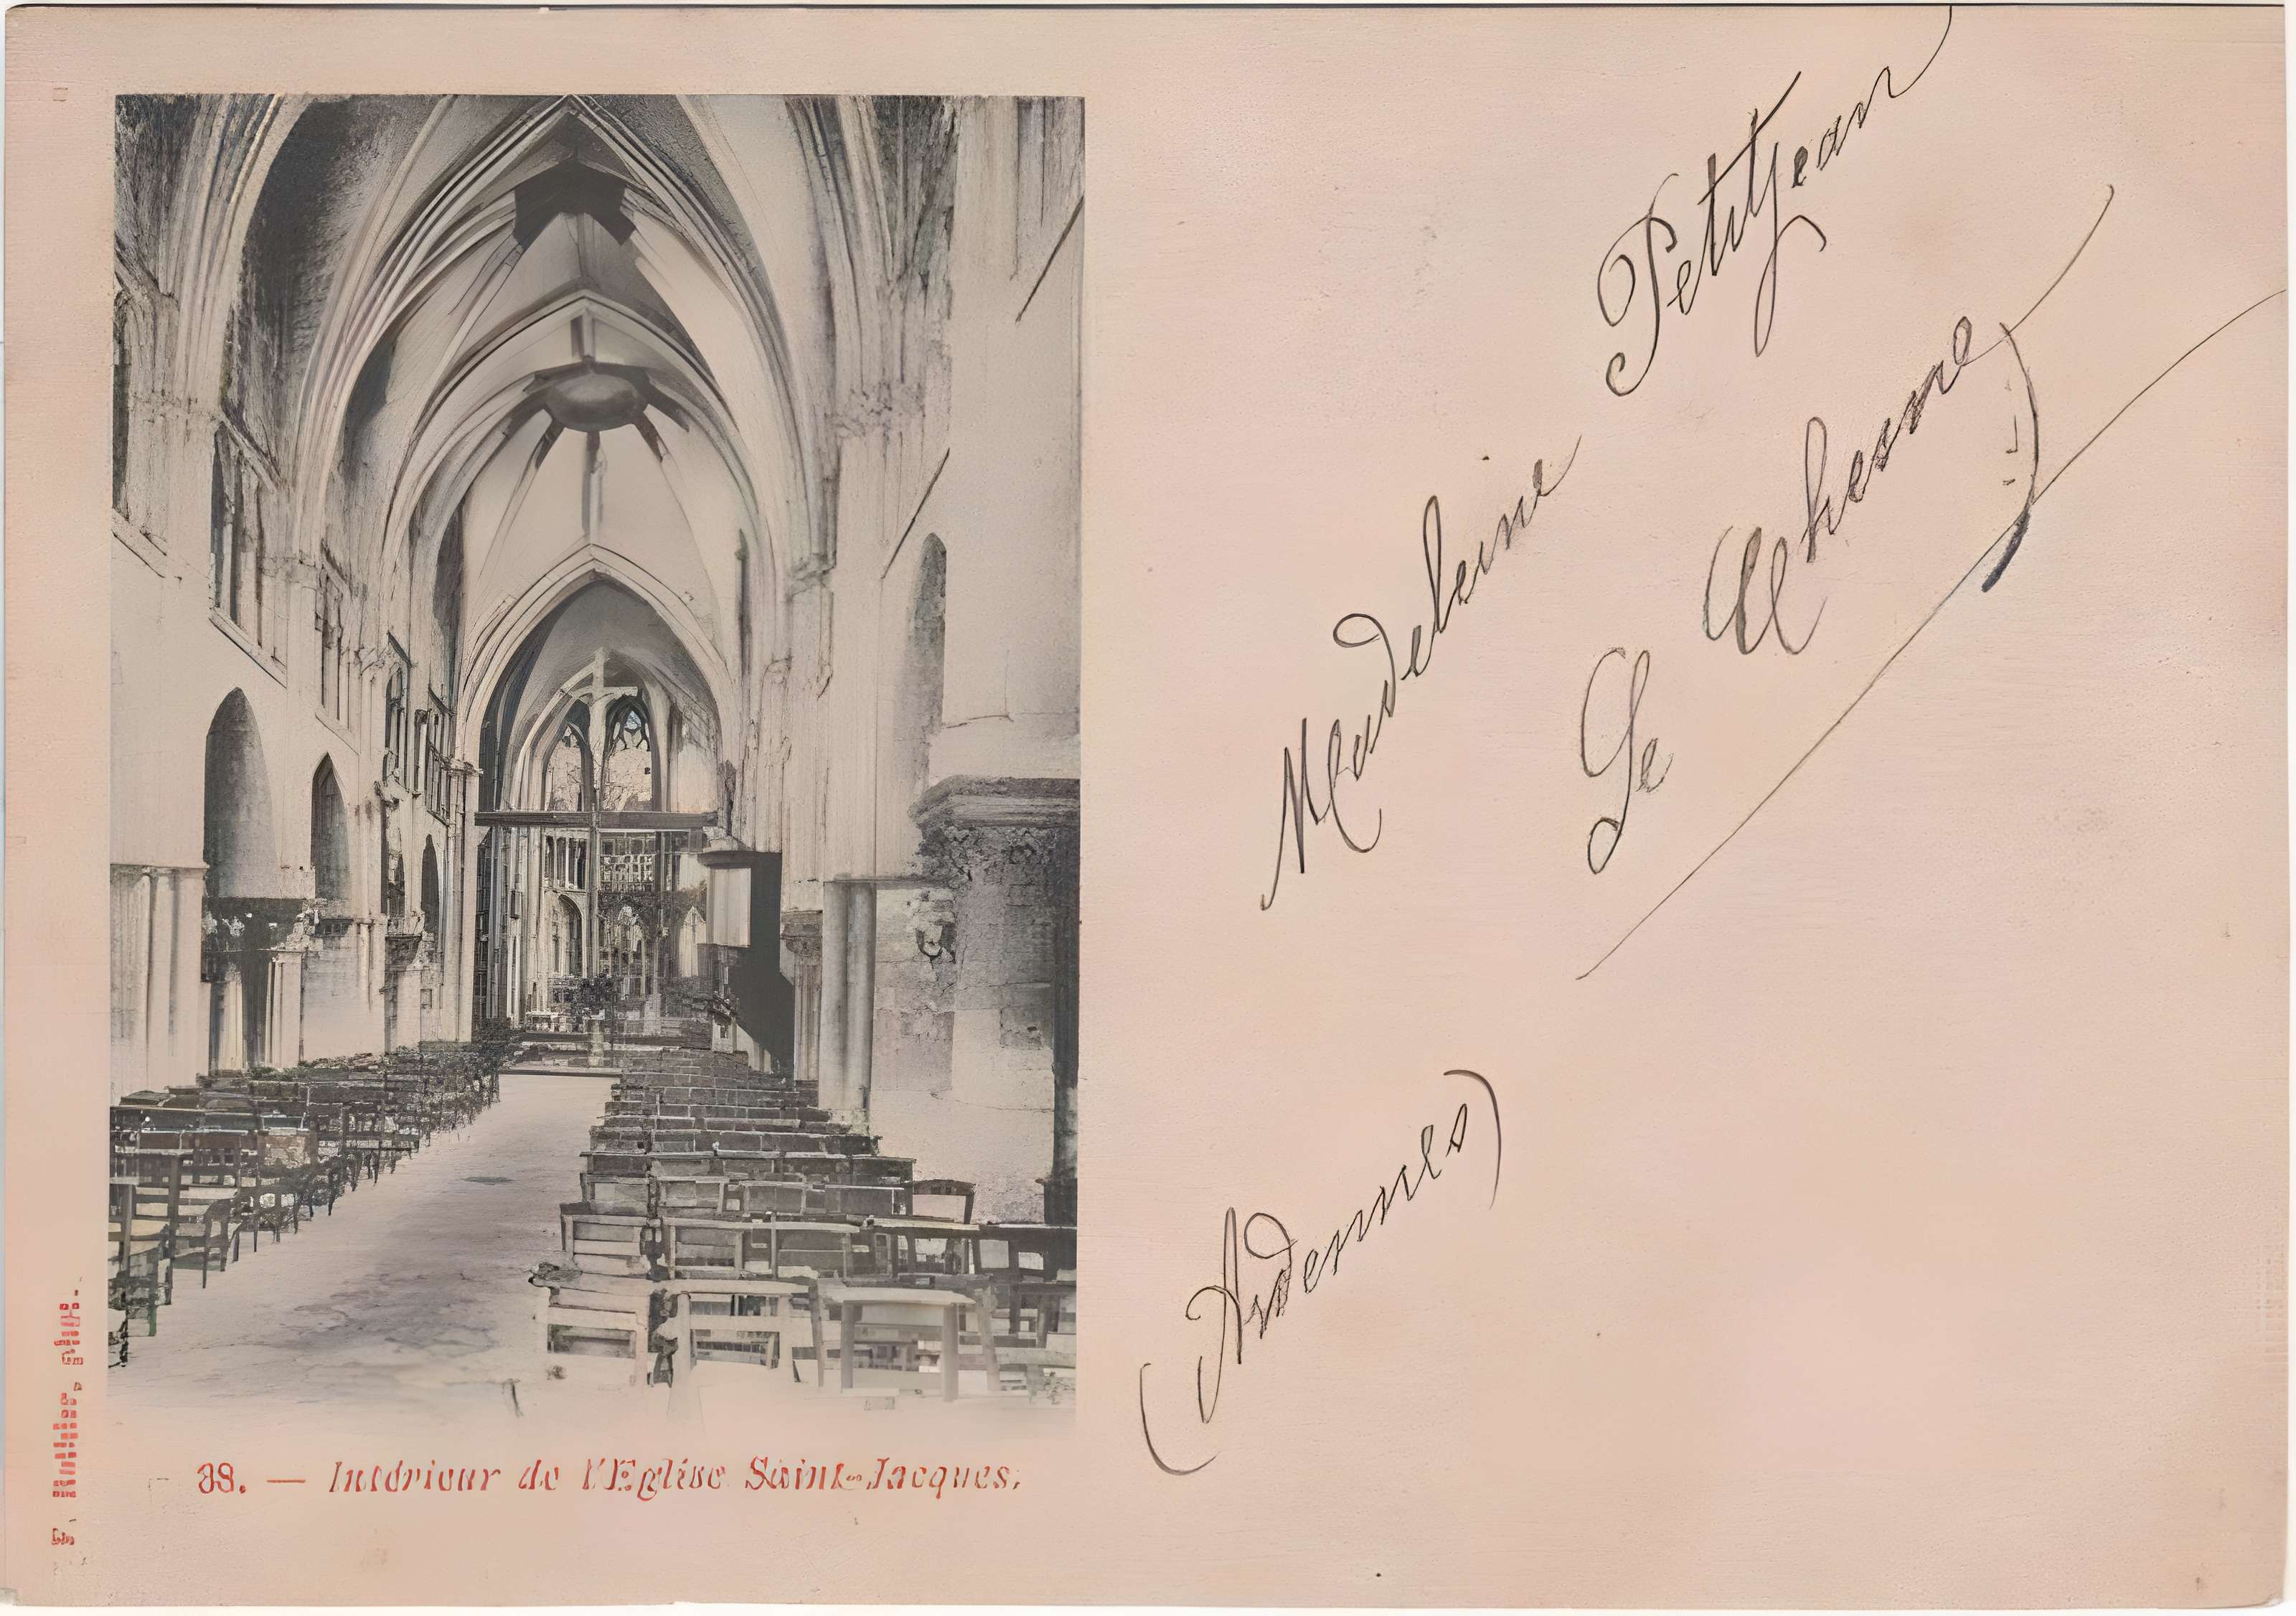 Madeleine Petitjean
Le Chesne
(Ardennes)
38. — Intérieur de l'Eglise Saint-Jacques.
phot.